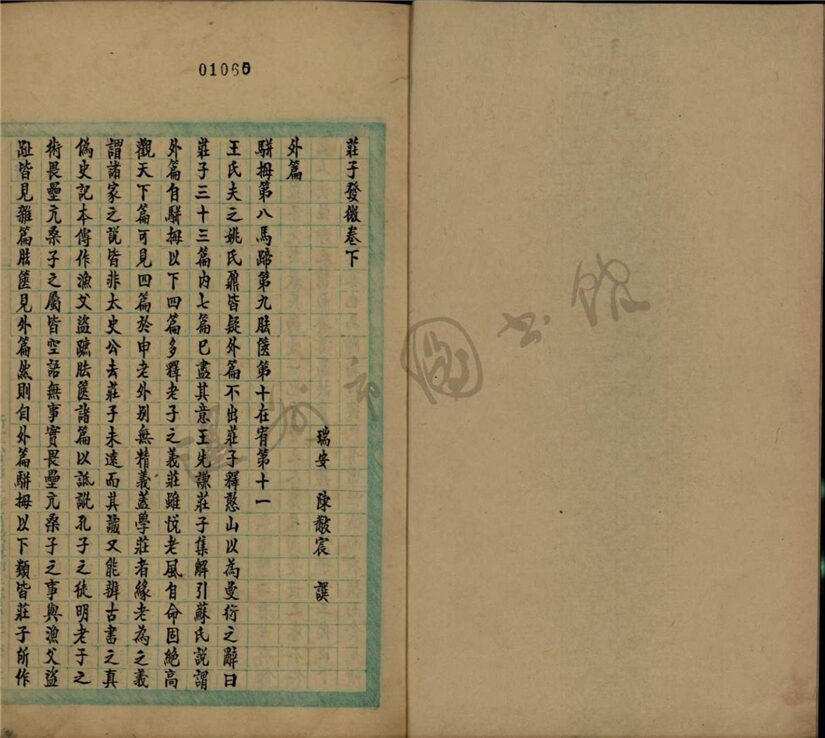 01060
莊子發微卷下
瑞安 陳黻宸 譔
外篇
駢拇第八馬蹄第九胠篋第十在宥第十一
王氏夫之姚氏鼐皆疑外篇不出莊子釋憨山以為曼衍之辭曰
莊子三十三篇內七篇已盡其意王先謙莊子集解引蘇氏說謂
外篇自駢拇以下四篇多釋老子之義莊雖悅老風自命固絕高
觀天下篇可見四篇於申老外别無精義蓋學莊者緣老為之義
謂諸家之說皆非太史公去莊子未遠而其識又能辨古書之真
偽史記本傳作漁父盜跖胠篋諸篇以詆訿孔子之徒明老子之
術畏壘亢桑子之屬皆空語無事實畏壘亢桑子之事與漁父盜
跖皆見雜篇胠篋見外篇然則自外篇駢拇以下類皆莊子所作
市圖書館